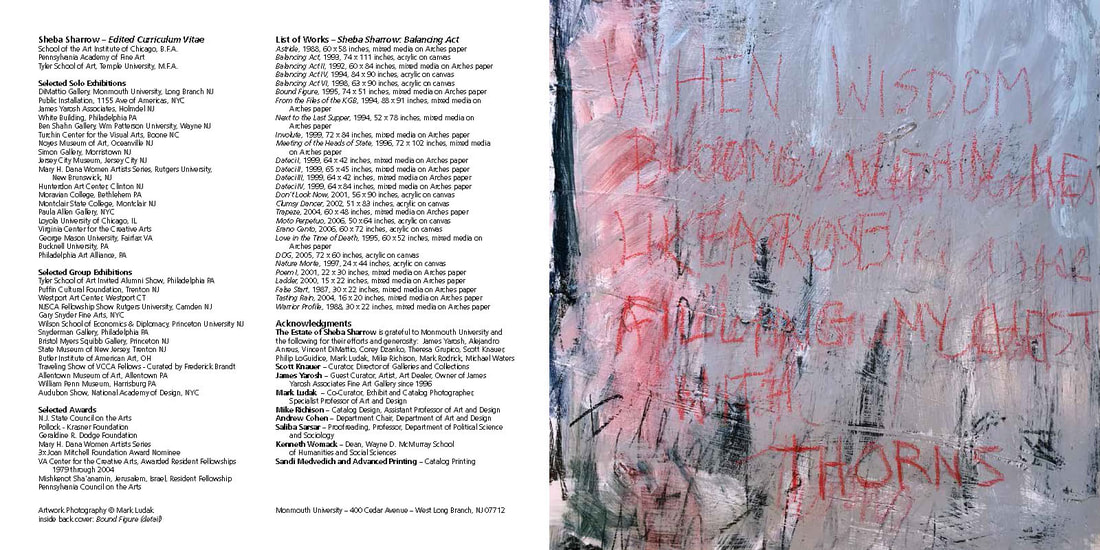 Sheba Sharrow – Edited Curriculum Vitae
School of the Art Institute of Chicago, B.F.A.
Pennsylvania Academy of Fine Art
Tyler School of Art, Temple University, M.F.A.
Selected Solo Exhibitions
DiMattio Gallery, Monmouth University, Long Branch NJ
Public Installation, 1155 Ave of Americas, NYC
James Yarosh Associates, Holmdel NJ
White Building, Philadelphia PA
Ben Shahn Gallery, Wm Patterson University, Wayne NJ
Turchin Center for the Visual Arts, Boone NC
Noyes Museum of Art, Oceanville NJ
Simon Gallery, Morristown NJ
Jersey City Museum, Jersey City NJ
Mary H. Dana Women Artists Series, Rutgers University,
New Brunswick, NJ
Hunterdon Art Center, Clinton NJ
Moravian College, Bethlehem PA
Montclair State College, Montclair NJ
Paula Allen Gallery, NYC
Loyola University of Chicago, IL
Virginia Center for the Creative Arts
George Mason University, Fairfax VA
Bucknell University, PA
Philadelphia Art Alliance, PA
Selected Group Exhibitions
Tyler School of Art Invited Alumni Show, Philadelphia PA
Puffin Cultural Foundation, Trenton NJ
Westport Art Center, Westport CT
NJSCA Fellowship Show Rutgers University, Camden NJ
Gary Snyder Fine Arts, NYC
Wilson School of Economics & Diplomacy, Princeton University NJ
Snyderman Gallery, Philadelphia PA
Bristol Myers Squibb Gallery, Princeton NJ
State Museum of New Jersey, Trenton NJ
Butler Institute of American Art, OH
Traveling Show of VCCA Fellows - Curated by Frederick Brandt
Allentown Museum of Art, Allentown PA
William Penn Museum, Harrisburg PA
Audubon Show, National Academy of Design, NYC
Selected Awards
N.J. State Council on the Arts
Pollock - Krasner Foundation
Geraldine R. Dodge Foundation
Mary H. Dana Women Artists Series
3x Joan Mitchell Foundation Award Nominee
VA Center for the Creative Arts, Awarded Resident Fellowships
1979 through 2004
Mishkenot Sha'anamin, Jerusalem, Israel, Resident Fellowship
Pennsylvania Council on the Arts
Artwork Photography © Mark Ludak
inside back cover: Bound Figure (detail)
List of Works – Sheba Sharrow: Balancing Act
Astride, 1988, 60 x 58 inches, mixed media on Arches paper
Balancing Act, 1993, 74 x 111 inches, acrylic on canvas
Balancing Act II, 1992, 60 x 84 inches, mixed media on Arches paper
Balancing Act IV, 1994, 84 x 90 inches, acrylic on canvas
Balancing Act VI, 1998, 63 x 90 inches, acrylic on canvas
Bound Figure, 1995, 74 x 51 inches, mixed media on Arches paper
From the Files of the KGB, 1994, 88 x 91 inches, mixed media on
Arches paper
Next to the Last Supper, 1994, 52 x 78 inches, mixed media on
Arches paper
Involute, 1999, 72 x 84 inches, mixed media on Arches paper
Meeting of the Heads of State, 1996, 72 x 102 inches, mixed media
on Arches paper
Datec I, 1999, 64 x 42 inches, mixed media on Arches paper
Datec II, 1999, 65 x 45 inches, mixed media on Arches paper
Datec III, 1999, 64 x 42 inches, mixed media on Arches paper
Datec IV, 1999, 64 x 84 inches, mixed media on Arches paper
Don't Look Now, 2001, 56 x 90 inches, acrylic on canvas
Clumsy Dancer, 2002, 51 x 83 inches, acrylic on canvas
Trapeze, 2004, 60 x 48 inches, acrylic on canvas
Moto Perpetuo, 2006, 50 x 64 inches, acrylic on canvas
Erano Cento, 2006, 60 x 72 inches, acrylic on canvas
Love in the Time of Death, 1995, 60 x 52 inches, mixed media on
Arches paper
DOG, 2005, 72 x 60 inches, acrylic on canvas
Nature Morte, 1997, 24 x 44 inches, acrylic on canvas
Poem I, 2001, 22 x 30 inches, mixed media on Arches paper
Ladder, 2000, 15 x 22 inches, mixed media on Arches paper
False Start, 1987, 30 x 22 inches, mixed media on Arches paper
Tasting Rain, 2004, 16 x 20 inches, mixed media on Arches paper
Warrior Profile, 1988, 30 x 22 inches, mixed media on Arches paper
Acknowledgments
The Estate of Sheba Sharrow is grateful to Monmouth University and
the following for their efforts and generosity: James Yarosh, Alejandro
Anreus, Vincent DiMattio, Corey Dzenko, Theresa Grupico, Scott Knauer,
Philip LoGuidice, Mark Ludak, Mike Richison, Mark Rodrick, Michael Waters
Scott Knauer – Curator, Director of Galleries and Collections
James Yarosh – Guest Curator, Artist, Art Dealer, Owner of James
Yarosh Associates Fine Art Gallery since 1996
Mark Ludak – Co-Curator, Exhibit and Catalog Photographer,
Specialist Professor of Art and Design
Mike Richison – Catalog Design, Assistant Professor of Art and Design
Andrew Cohen – Department Chair, Department of Art and Design
Saliba Sarsar – Proofreading, Professor, Department of Political Science
and Sociology
Kenneth Womack – Dean, Wayne D. McMurray School
of Humanities and Social Sciences
Sandi Medvedich and Advanced Printing – Catalog Printing
Monmouth University – 400 Cedar Avenue – West Long Branch, NJ 07712
WHEN WISDOM
LIKE A ROSE
FILLING MY CHEST
WITH
THORNS